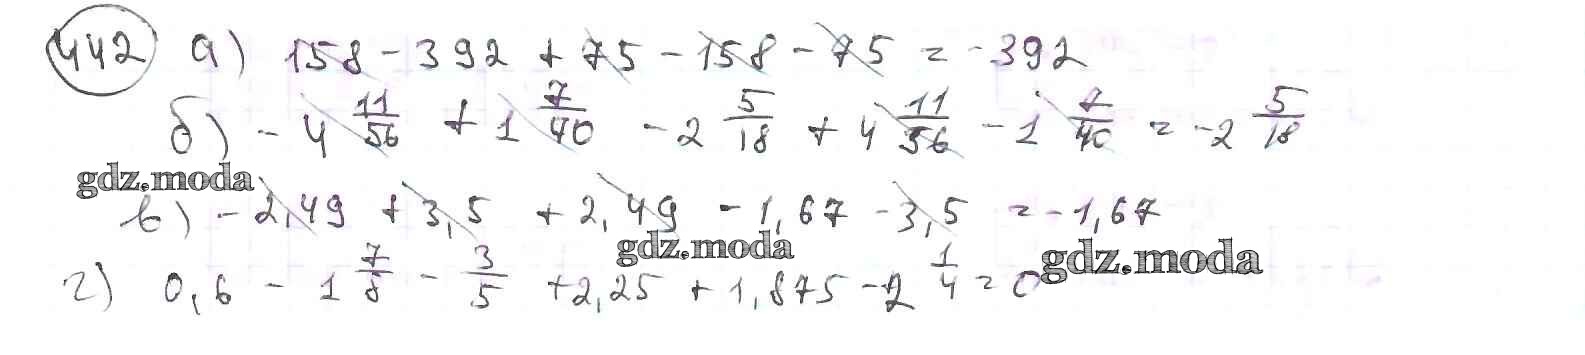 442 а) 158 - 392 + 75 - 158 - 75 = -392
б) - 4 11/56 + 1 7/40 - 2 5/18 + 4 11/56 - 1 7/40 = -2 5/18
gdz.moda
в) - 2,49 + 3,5 + 2,49 - 1,67 - 3,5 = -1,67
gdz.moda gdz.moda
г) 0,6 - 1 7/8 - 3/5 + 2,25 + 1,875 - 2 1/4 = 0